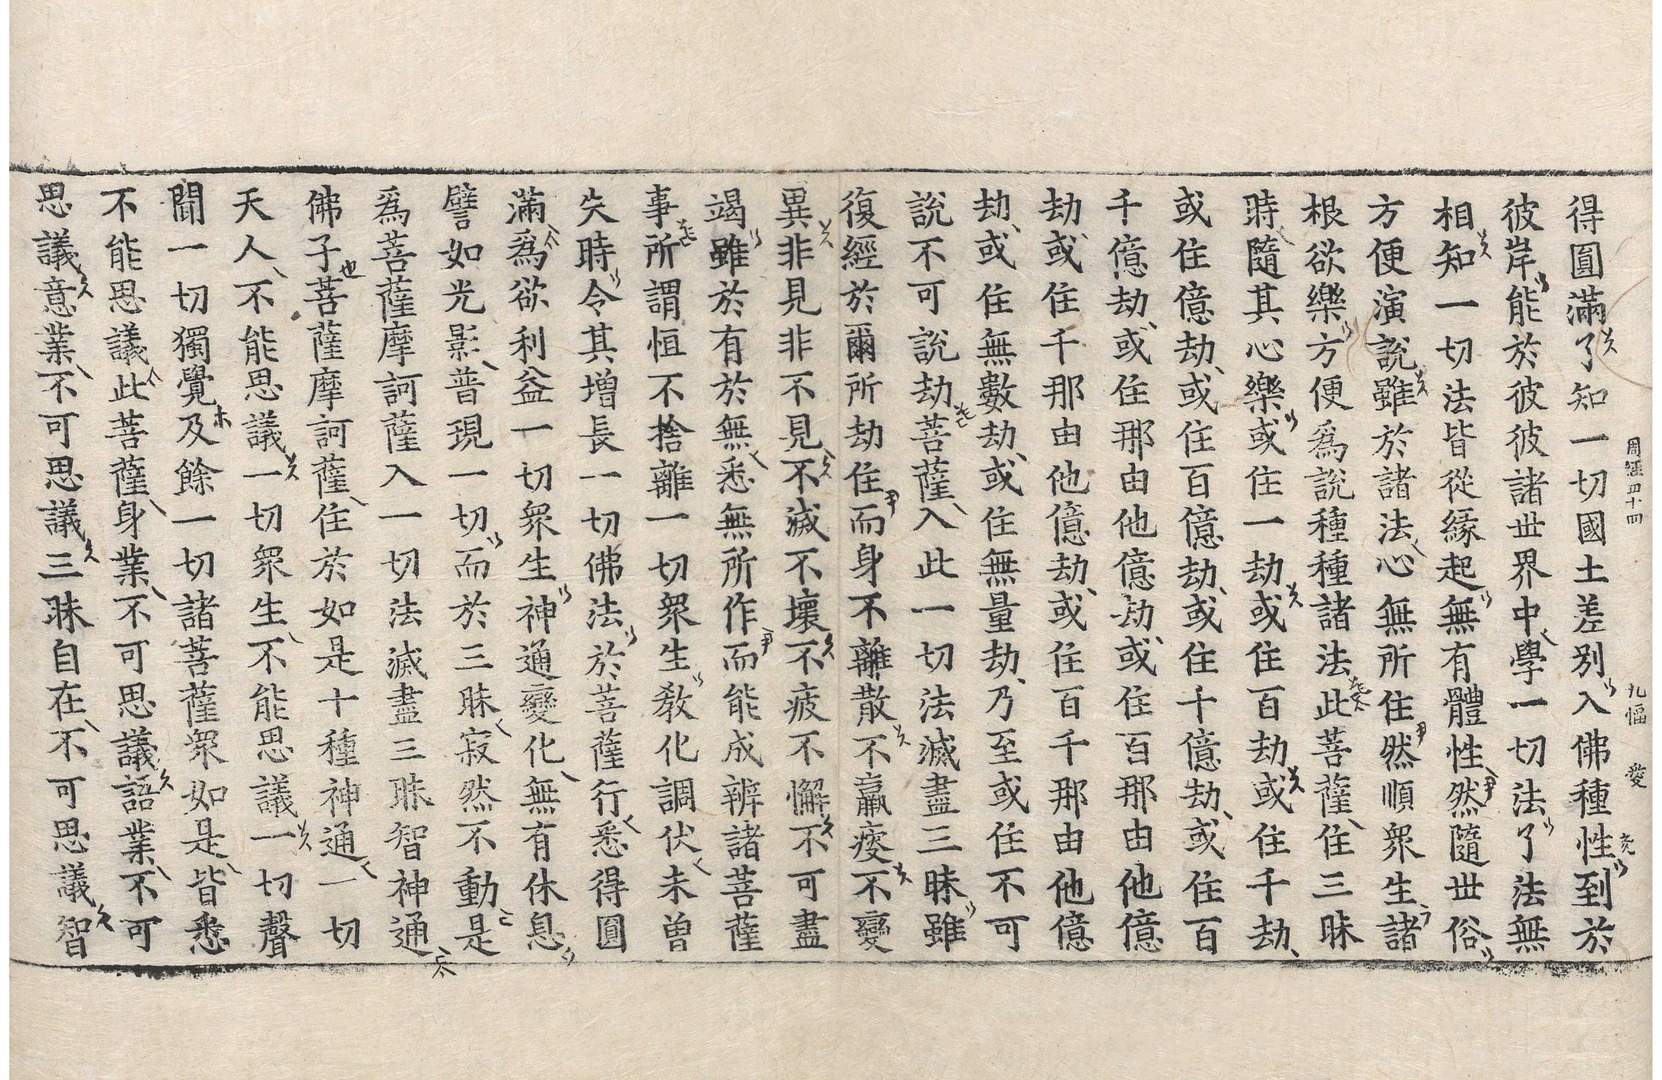 得圓滿了知一切國土差別入佛種性到於
彼岸能於彼彼諸世界中學一切法了法無
相知一切法皆從緣起無有體性然隨世俗
方便演說雖於諸法心無所住然順衆生諸
根欲樂方便爲說種種諸法此菩薩住三昧
時隨其心樂或住一劫或住百劫或住千劫
或住億劫或住百億劫或住千億劫或住百
千億劫或住那由他億劫或住百那由他億
劫或住千那由他億劫或住百千那由他億
劫或住無數劫或住無量劫乃至或住不可
說不可說劫菩薩入此一切法滅盡三昧雖
復經於爾所劫住而身不離散不羸瘦不變
異非見非不見不滅不壞不疲不懈不可盡
竭雖於有於無悉無所作而能成辦諸菩薩
事所謂恒不捨離一切衆生教化調伏未曾
失時令其增長一切佛法於菩薩行悉得圓
滿爲欲利益一切衆生神通變化無有休息
譬如光影普現一切而於三昧寂然不動是
爲菩薩摩訶薩入一切法滅盡三昧智神通
佛子菩薩摩訶薩住於如是十種神通一切
天人不能思議一切衆生不能思議一切聲
聞一切獨覺及餘一切諸菩薩衆如是皆悉
不能思議此菩薩身業不可思議語業不可
思議意業不可思議三昧自在不可思議智